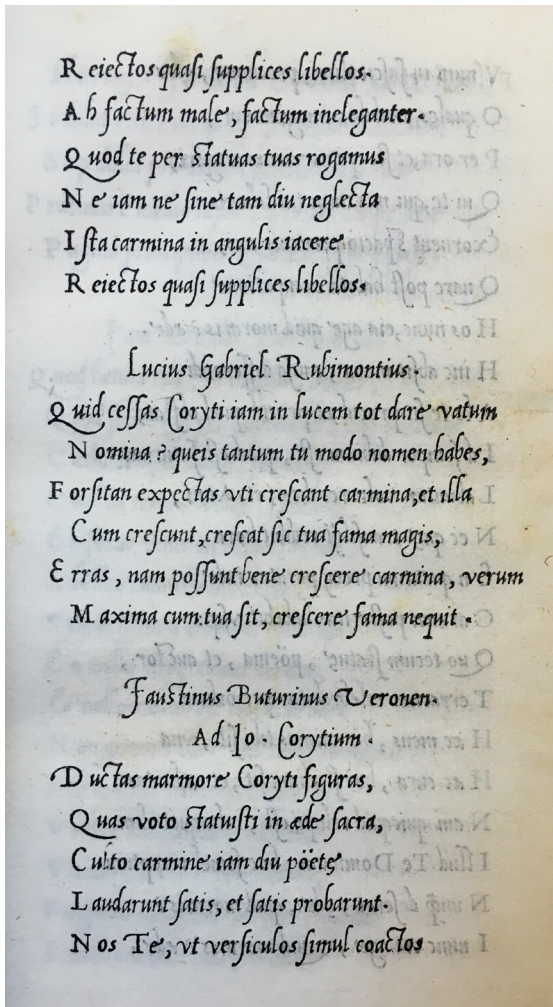 Reiectos quasi supplices libellos.
Ah factum male, factum ineleganter.
Quod te per statuas tuas rogamus
Ne iam ne sine tam diu neglecta
Ista carmina in angulis iacere
Reiectos quasi supplices libellos.
Lucius Gabriel Rubimontius.
Quid cessas Coryti iam in lucem tot dare vatum
Nomina? queis tantum tu modo nomen habes,
Forsitan expectas vti crescant carmina, et illa
Cum crescunt, crescat sic tua fama magis,
Erras, nam possunt bene crescere carmina, verum
Maxima cum tua sit, crescere fama nequit.
Faustinus Buturinus Veronen.
Ad Io. Corytium.
Ductas marmore Coryti figuras,
Quas voto statuisti in æde sacra,
Culto carmine iam diu pöetę
Laudarunt satis, et satis probarunt.
Nos Te, vt versiculos simul coactos